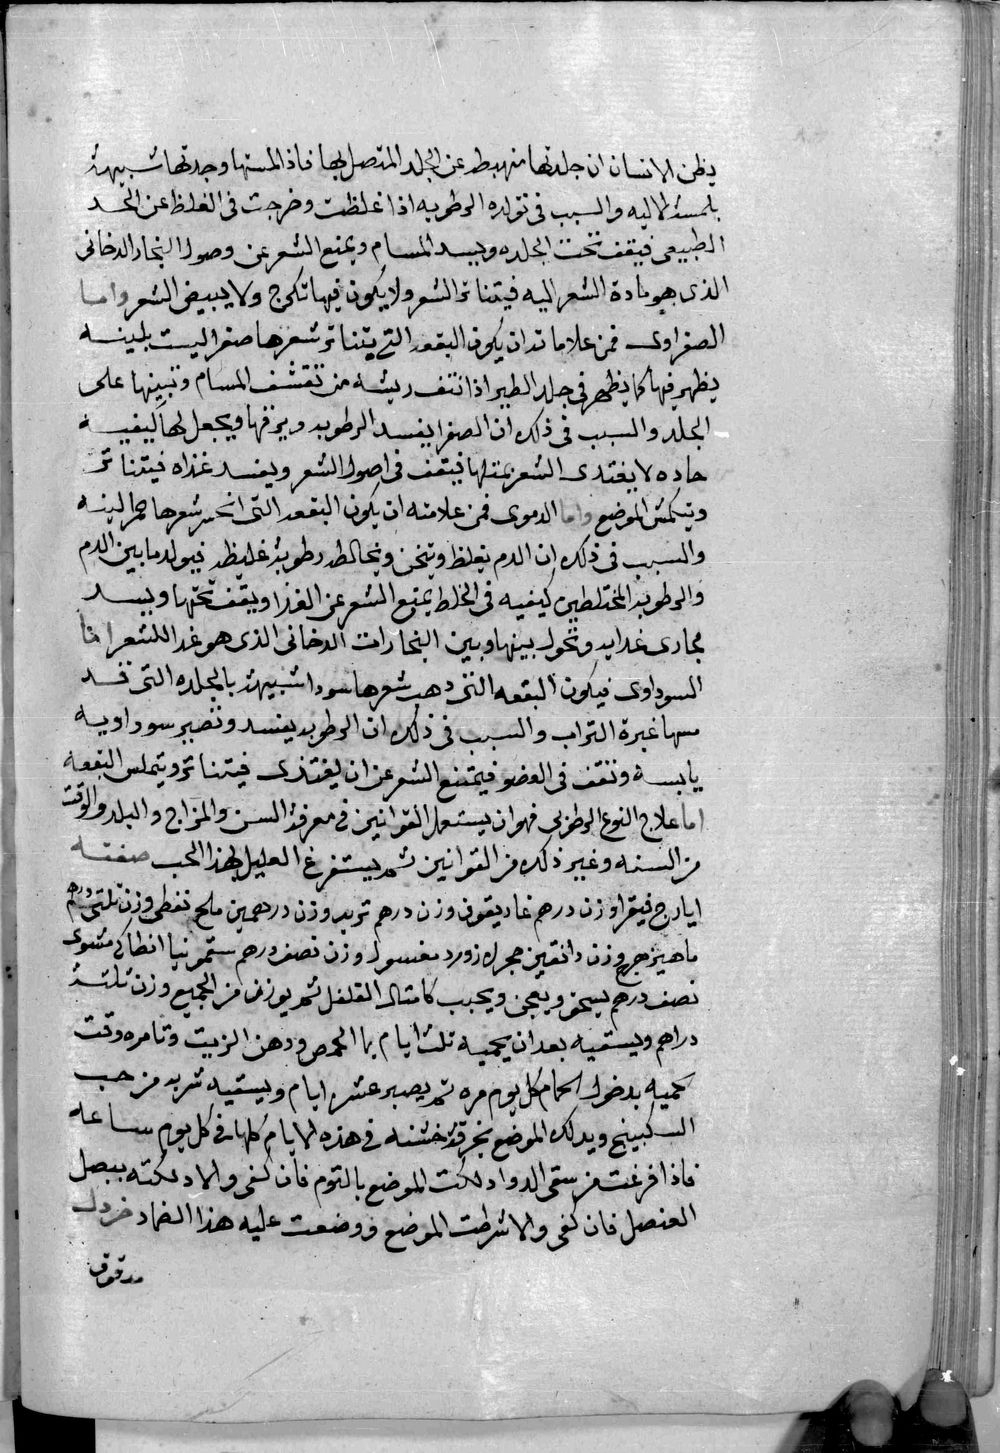 يظن الانسان ان جلدتها منهبط عن الجلد المتصل بها فاذا لمستها وجدتها شبيهة
بلمسة الاليه والسبب فى تولده الرطوبه اذا غلظت وخرجت فى الغلظ عن الحد
الطبيعى فيقف تحت الجلده ويسد المسام ويمنع الشعر عن وصول البخار الدخانى
الذى هو مادة الشعر اليه فيتناثر الشعر ولا يكون فيها تكرج ولا يبيض الشعر واما
الصفراوى فمن علاماته ان يكون البقعه التى يتناثر شعرها صفرا ليست بلينه
يظهر فيها كما يظهر فى جلد الطير اذا نتف ريشه من تقشف المسام وتبينها على
الجلد والسبب فى ذلك ان الصفرا يفسد الرطوبه ويحرقها ويجعل لها كيفيه
حاده لا يغتذى الشعر بمثلها فيقف فى اصول الشعر ويفسد غذاه فيتناثر
ويتكمش الموضع واما الدموى فمن علامته ان يكون البقعه التى انحسر شعرها حمرا لينه
والسبب فى ذلك ان الدم يغلظ ويثخن ويخالط رطوبة غليظه فيولد ما بين الدم
والرطوبه المختلطين كيفيه فى الخلط يمنع الشعر عن الغذا ويقف تحتها ويسد
مجارى غدايه وتحول بينها وبين البخارات الدخانى الذى هو غدا للشعر اما
السوداوى فيكون البقعه التى ذهب شعرها سودا شبيهة بالجلده التى قد
مسها غبرة التراب والسبب فى ذلك ان الرطوبه يفسد وتصير سوداويه
يابسه وتقف فى العضو فيمتنع الشعر عن ان يغتذى فيتناثر ويتملس البقعه
اما علاج النوع الرطوبى فهو ان يستعمل القوانين فى معرفة السن والمزاج والبلد والوقت
من السنه وغير ذلك من القوانين ثم يستفرغ العليل بهذا الحب صفته
ايارج فيقرا وزن درهم غاريقون وزن درهم تربد وزن درهمين ملح نفطى وزن ثلثى درهم
ماهيزهرج وزن دانقين حجر لازورد مغسول وزن نصف درهم سقمونيا انطاكى مشوى
نصف درهم يسحق ويعجن ويحبب كامثال الفلفل ثم يوزن من الجميع وزن ثلثة
دراهم ويسقيه بعد ان يحميه ثلث ايام بما الحمص ودهن الزيت وتامره وقت
حميه بدخول الحمام كل يوم مره ثم يصبر عشر ايام ويسقيه شربه من حب
السكبينج ويدلك الموضع بخرقة خشنه فى هذه الايام كلها فى كل يوم ساعه
فاذا فرغت من سقى الدوا دلكت الموضع بالثوم فان كفى والا دلكته ببصل
العنصل فان كفى والا شرطت الموضع ووضعت عليه هذا الضماد خردل
مدقوق